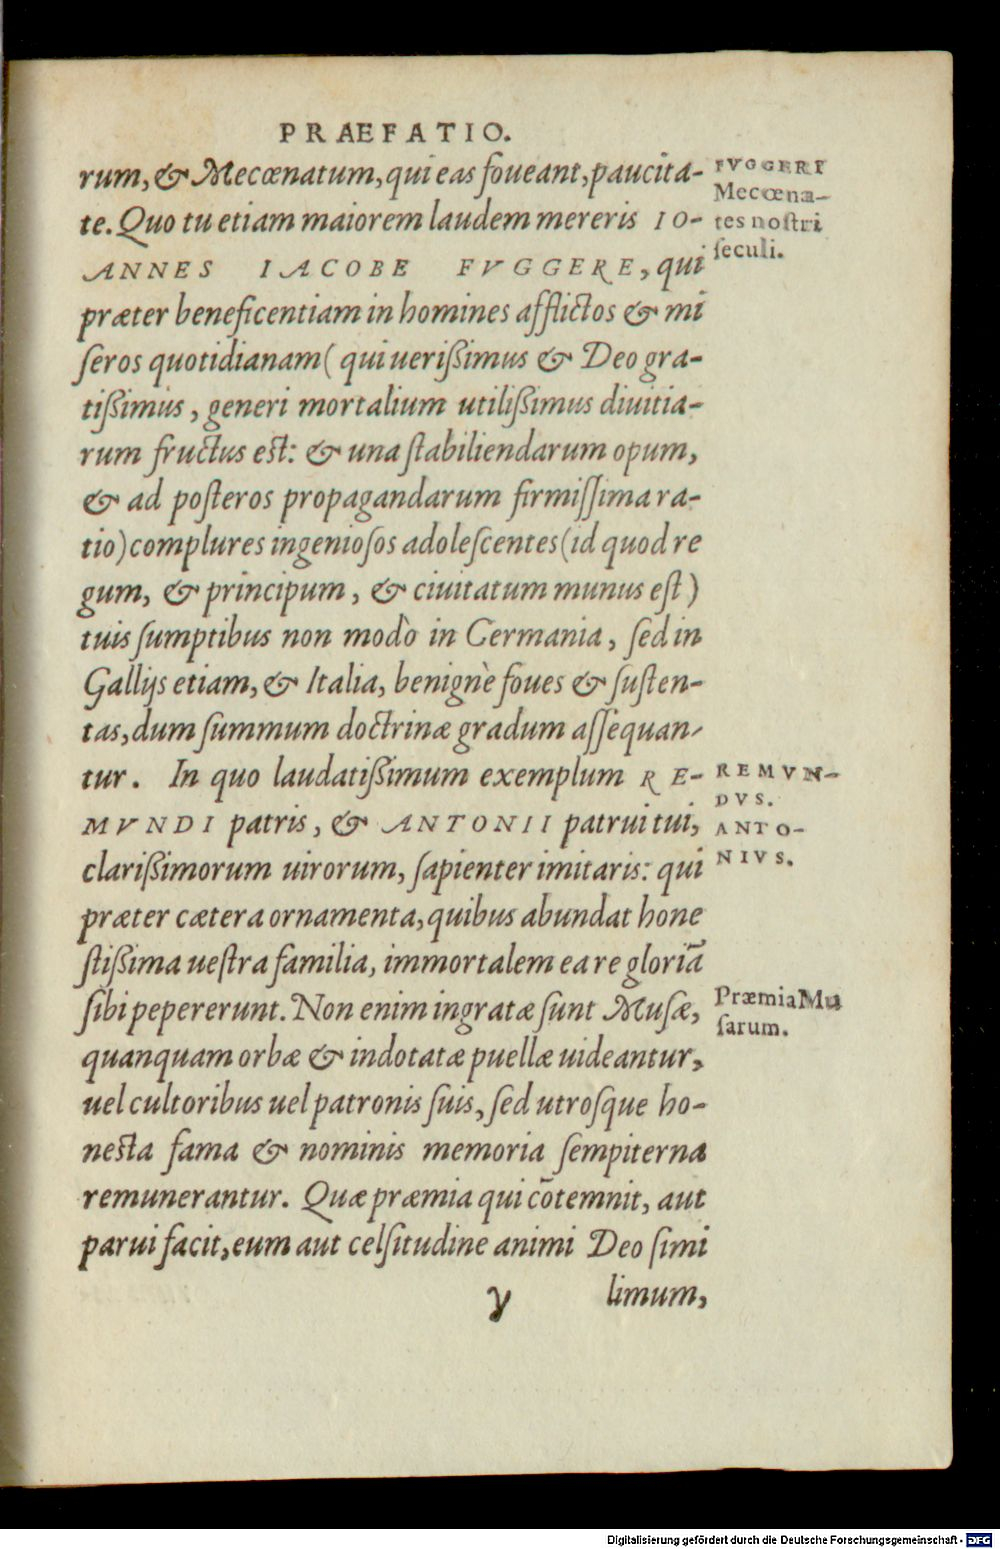 PRAEFATIO.
rum, & Mecœnatum, qui eas foueant, paucita-
te. Quo tu etiam maiorem laudem mereris IO-
ANNES IACOBE FVGGERE, qui
præter beneficentiam in homines afflictos & mi
seros quotidianam (qui uerißimus & Deo gra-
tißimus, generi mortalium utilißimus diuitia-
rum fructus est: & una stabiliendarum opum,
& ad posteros propagandarum firmissima ra-
tio) complures ingeniosos adolescentes (id quod re
gum, & principum, & ciuitatum munus est)
tuis sumptibus non modò in Germania, sed in
Gallijs etiam, & Italia, benignè foues & susten-
tas, dum summum doctrinæ gradum assequan-
tur. In quo laudatißimum exemplum RE-
MVNDI patris, & ANTONII patrui tui,
clarißimorum uirorum, sapienter imitaris: qui
præter cætera ornamenta, quibus abundat hone
stißima uestra familia, immortalem ea re gloriā
sibi pepererunt. Non enim ingratæ sunt Musæ,
quanquam orbæ & indotatæ puellæ uideantur,
uel cultoribus uel patronis suis, sed utrosque ho-
nesta fama & nominis memoria sempiterna
remunerantur. Quæ præmia qui cōtemnit, aut
parui facit, eum aut celsitudine animi Deo simi
γ limum,
FVGGERI
Mecœna-
tes nostri
seculi.
REMVN-
DVS.
ANTO-
NIVS.
Præmia Mu
sarum.
Digitalisierung gefördert durch die Deutsche Forschungsgemeinschaft - DFG